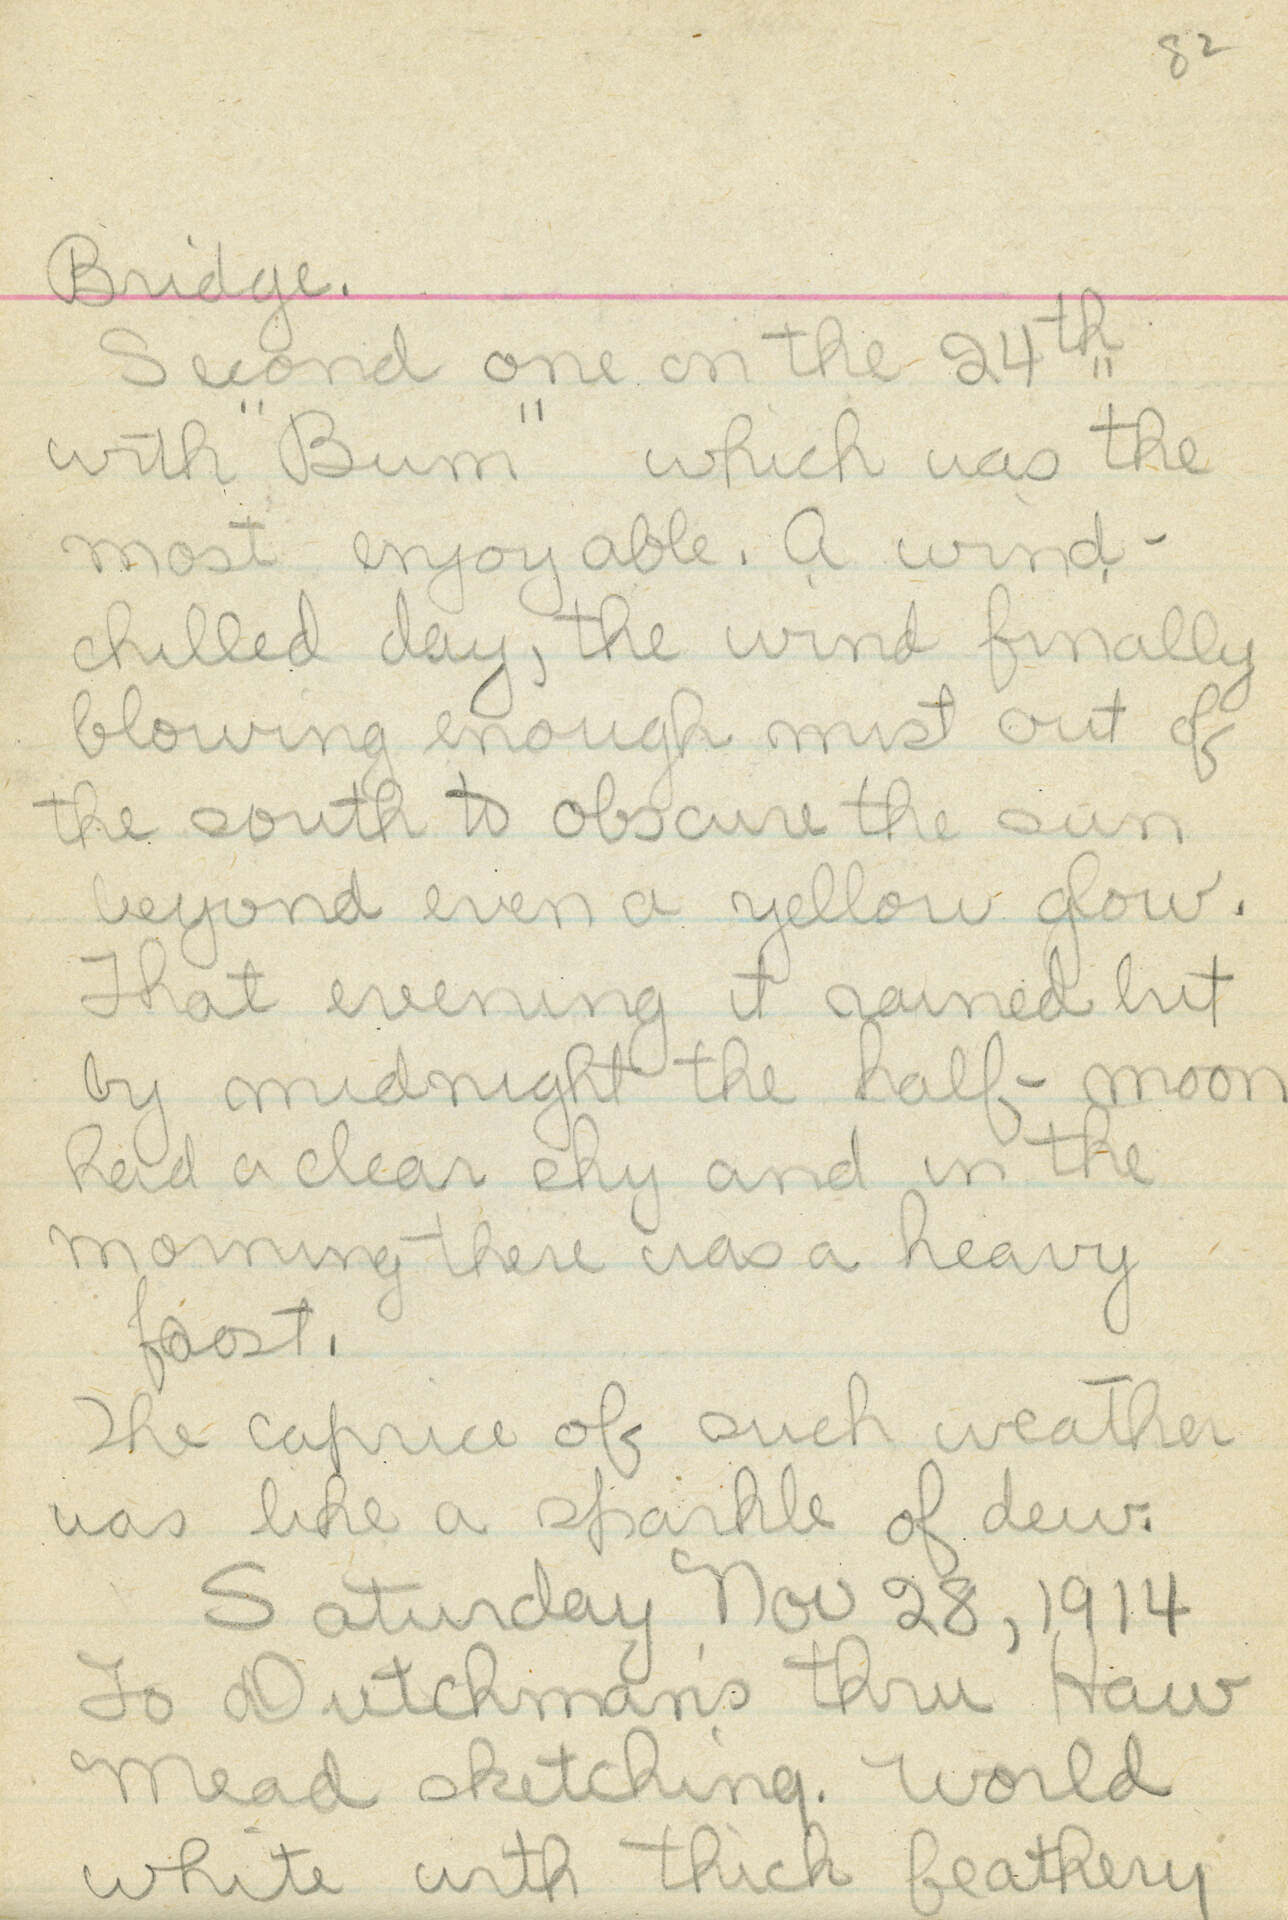 82
Bridge.
Second one on the 24th
with "Bum" which was the
most enjoyable. A wind-
chilled day, the wind finally
blowing enough mist out of
the south to obscure the sun
beyond even a yellow glow.
That evening it rained but
by midnight the half-moon
had a clear sky and in the
morning there was a heavy
frost.
The caprice of such weather
was like a sparkle of dew.
Saturday Nov 28, 1914
To Dutchman's thru Haw
Mead sketching. World
white with thick feathery